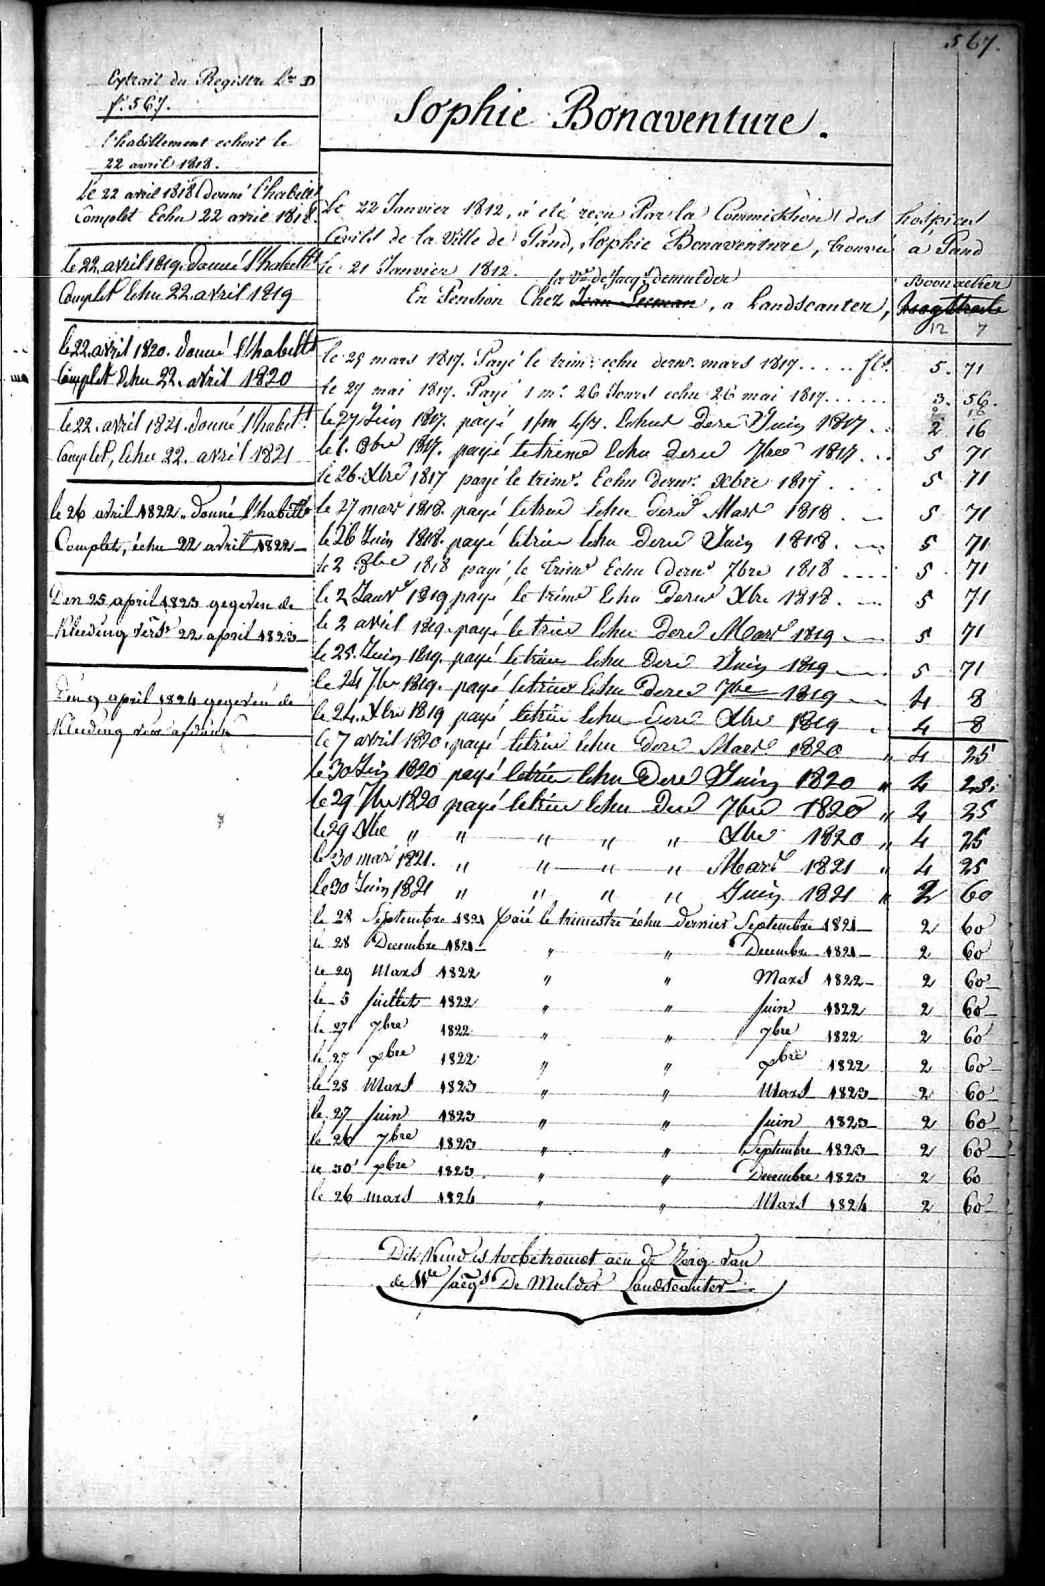 567.
Extrait du Registre Lre D
fo. 567.
l'habillement echoit le
22 avril 1818.
Le 22 avril 1818 donné l'habillt
Complet Echu 22 avril 1818.
le 22 avril 1819. donné l'habillt
Complet Echu 22 avril 1819
le 22 avril 1820. donné l'habillt
Complet Echu 22. avril 1820
le 22. avril 1821. donné l'habillt
Complet, Echu 22. avril 1821
le 26 avril 1822 donné l'habillt
Complet, échu 22 avril 1822
Den 25 april 1823 gegeven de
Kleeding 22 april 1823
april 1824 gegeven de
Kleeding
Sophie Bonaventure.
Le 22 Janvier 1812, a été recu Par la Commission des hospices
Civils de la Ville de Gand, Sophie Bonaventure, trouvée a Gand
le 21 Janvier 1812.
la Ve. de Jacqs demulder
Boonacker
En Pension Chez Jean , a Landscauter,
12 7
le 29 mars 1817. Payé le trim: echu dernr. mars 1817 ..... fls. 5. 71
le 27 mai 1817. Payé 1 m. 26 Jours echu 26 mai 1817 ...... 3. 56.
le 27 Juin 1817. payé Echu dere Juin 1817 .. 2 16
le 1. 8bre 1817. payé le trime Echu dere 7bre 1817 ... 5 71
le 26. Xbre 1817 payé le trimr. Echu dernr. Xbre 1817 . . . 5 71
le 27 mars 1818. payé le trim Echu dere Mars 1818 . 5 71
le 26 Juin 1818. payé le trim Echu dere Juin 1818 . 5 71
le 2 8bre 1818 payé, le trimr Echu dernr 7bre 1818 .... 5 71
le 2 Janvr 1819 payé le trimr Echu dernr Xbre 1818 . 5 71
le 2 avril 1819. payé le trim Echu Dere Mars 1819 . 5 71
le 25. Juin 1819. payé le trim Echu Dere Juin 1819 5 71
le 24 7bre 1819. payé le trim Echu Dere 7bre 1819 4 8
le 24. Xbre 1819 payé le trim Echu Dere Xbre 1819 4 8
le 7 avril 1820. payé le trim Echu Dere Mars 1820 " 4 25
le 30 Juin 1820 payé le trim Echu Dere Juin 1820 " 4 25.
le 29 7bre 1820 payé le trim Echu Dere 7bre 1820 " 4 25
le 29 Xbre " " " " " Xbre 1820 " 4 25
le 30 mars 1821. " " " " Mars 1821 " 4 25
le 30 Juin 1821 " " " " Juin 1821 " 2 60
le 28 Septembre 1821 Paié le trimestre échu dernier Septembre 1821 2 60
le 28 Decembre 1821 " " Decembre 1821 2 60
le 29 Mars 1822 " " Mars 1822 2 60
le 5 Juillet 1822 " " Juin 1822 2 60
le 27 7bre 1822 " " 7bre 1822 2 60
le 27 xbre 1822 " " xbre 1822 2 60
le 28 Mars 1823 " " Mars 1823 2 60
le 27 Juin 1823 " " Juin 1823 2 60
le 26 7bre 1823 " " Septembre 1823 2 60
le 30 xbre 1823 " " Decembre 1823 2 60
le 26 mars 1824 " " Mars 1824 2 60
Dit Kind is toebetrouwt aen de Zorg van
de We Jacqs De Mulder Landscauter